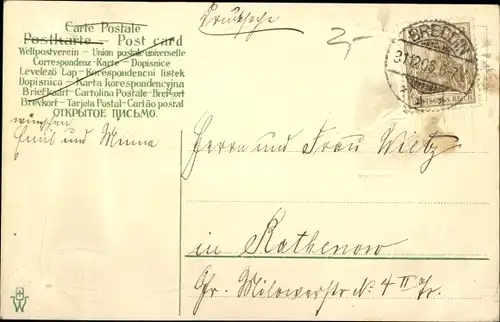 Drucksache
Carte Postale
Postkarte — Post card
Weltpostverein — Union postale universelle
Correspondenz-Karte — Dopisnice
Levelező Lap — Korespondenční lístek
Dopisnica — Karta korespondencyjna
Briefkaart — Cartolina Postale — Brefkort
Brevkort — Tarjeta Postal — Cartão postal
ОТКРЫТОЕ ПИСЬМО.
2,-
BREDDIN
31.12.06. 6-7N.
DEUTSCHES REICH
wünschen
Emil und Minna
Herrn und Frau Wietz
in Rathenow
Gr. Milowerstr N. 4 II Tr.
W